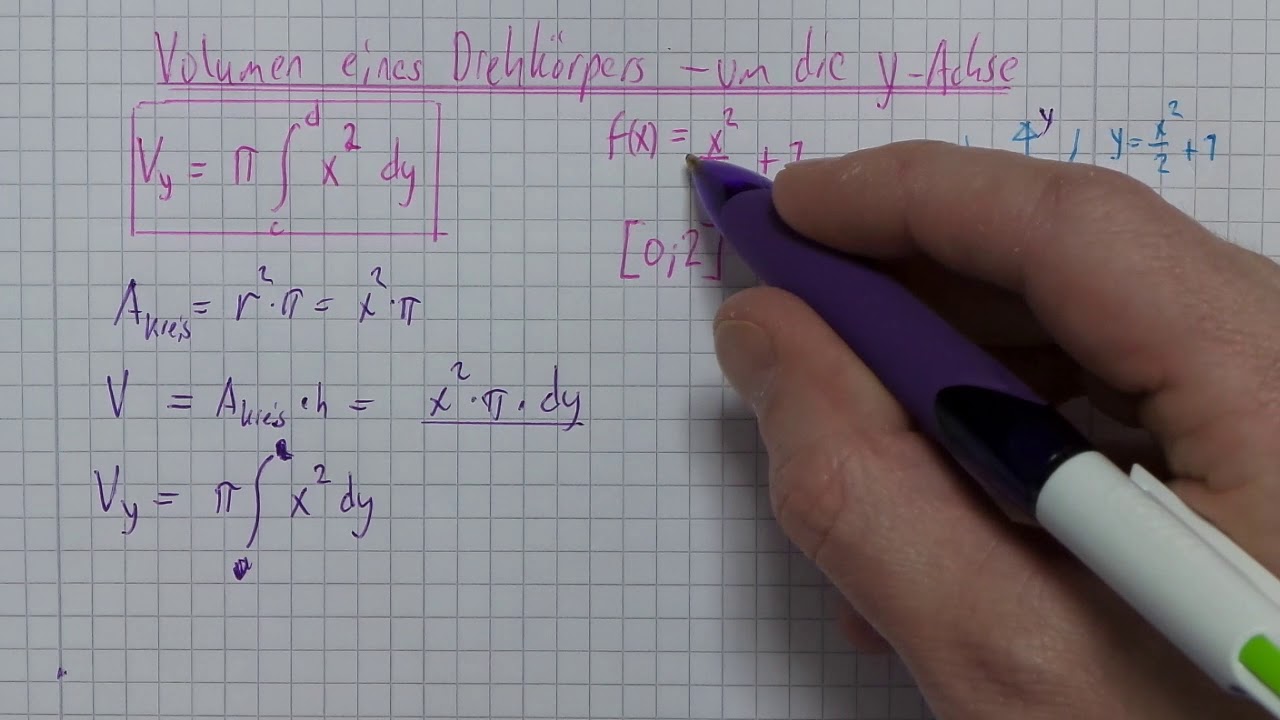 Volumen eines Drehkörpers - um die y-Achse
V_y = π ∫_c^d x² dy
f(x) = x²/ + 1
4 y
y = x²/2 + 1
[0;2]
A_Kreis = r² · π = x² · π
V = A_Kreis · h = x² · π · dy
V_y = π ∫ x² dy